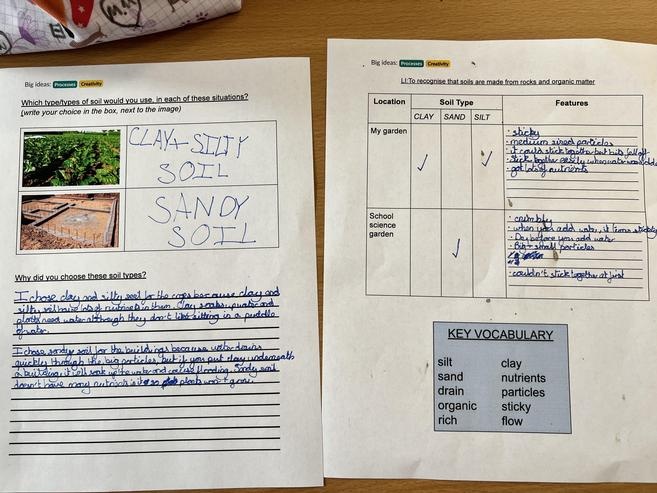 Big ideas: Processes Creativity
Which type/types of soil would you use, in each of these situations?
(write your choice in the box, next to the image)
CLAY + SILTY
SOIL
SANDY
SOIL
Why did you choose these soil types?
I chose clay and silty soil for the crops because clay and
silty soil have lots of nutrients in them. Clay soaks water and
plants need water although they don't like sitting in a puddle
of water.
I chose sandy soil for the buildings because water drains
quickly through the big particles, but if you put clay underneath
a building, it will soak up the water and cause flooding. Sandy soil
doesn't have many nutrients in it so plants won't grow.
Big ideas: Processes Creativity
LI:To recognise that soils are made from rocks and organic matter
Location Soil Type Features
CLAY SAND SILT
My garden
• sticky
• medium sized particles
• it could stick together but bits fell off
• stick together easily when water was
• got lots of nutrients
School
science
garden
• crumbly
• when you add water, it turns sticky
• Dry before you add water
• Big + small particles
• couldn't stick together at first
KEY VOCABULARY
silt clay
sand nutrients
drain particles
organic sticky
rich flow